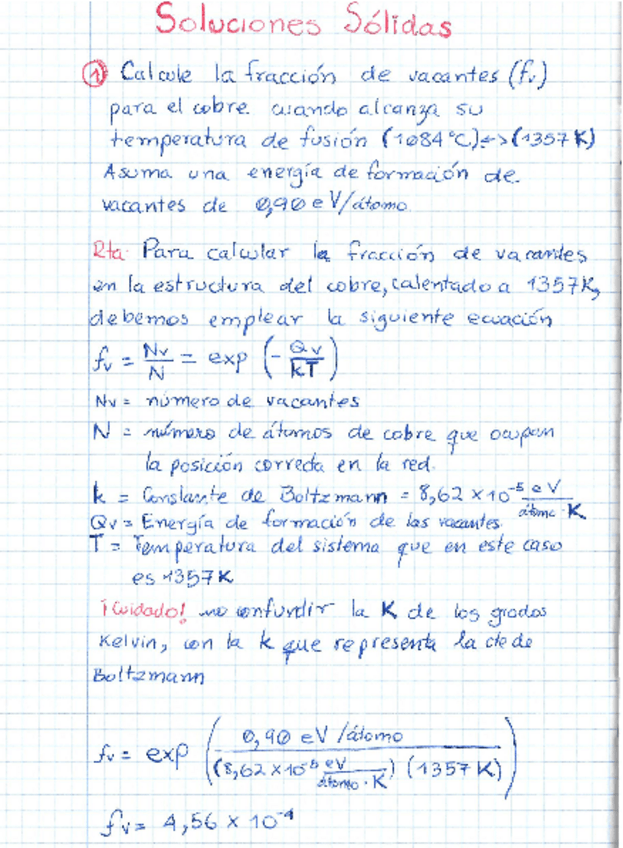 Soluciones Sólidas
① Calcule la fracción de vacantes (fᵥ)
para el cobre cuando alcanza su
temperatura de fusión (1084°C)↔(1357K)
Asuma una energía de formación de
vacantes de 0,90 eV/átomo
Rta: Para calcular la fracción de vacantes
en la estructura del cobre, calentado a 1357K,
debemos emplear la siguiente ecuación
fᵥ = Nv/N = exp (- Qv/kT)
Nv = número de vacantes
N = número de átomos de cobre que ocupan
la posición correcta en la red.
k = Constante de Boltzmann = 8,62 × 10⁻⁵ eV/átomo·K
Qv = Energía de formación de las vacantes.
T = Temperatura del sistema que en este caso
es 1357K
¡Cuidado! no confundir la K de los grados
Kelvin, con la k que representa la cte de
Boltzmann
fᵥ = exp (0,90 eV/átomo / (8,62 × 10⁻⁵ eV/átomo·K) (1357 K))
fᵥ = 4,56 × 10⁻⁴